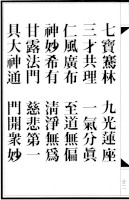 七寶騫林　九光蓮座
三才共理　一氣分真
仁風廣布　至道無偏
神妙希有　清淨無為
甘露法門　慈悲第一
具大神通　門開眾妙